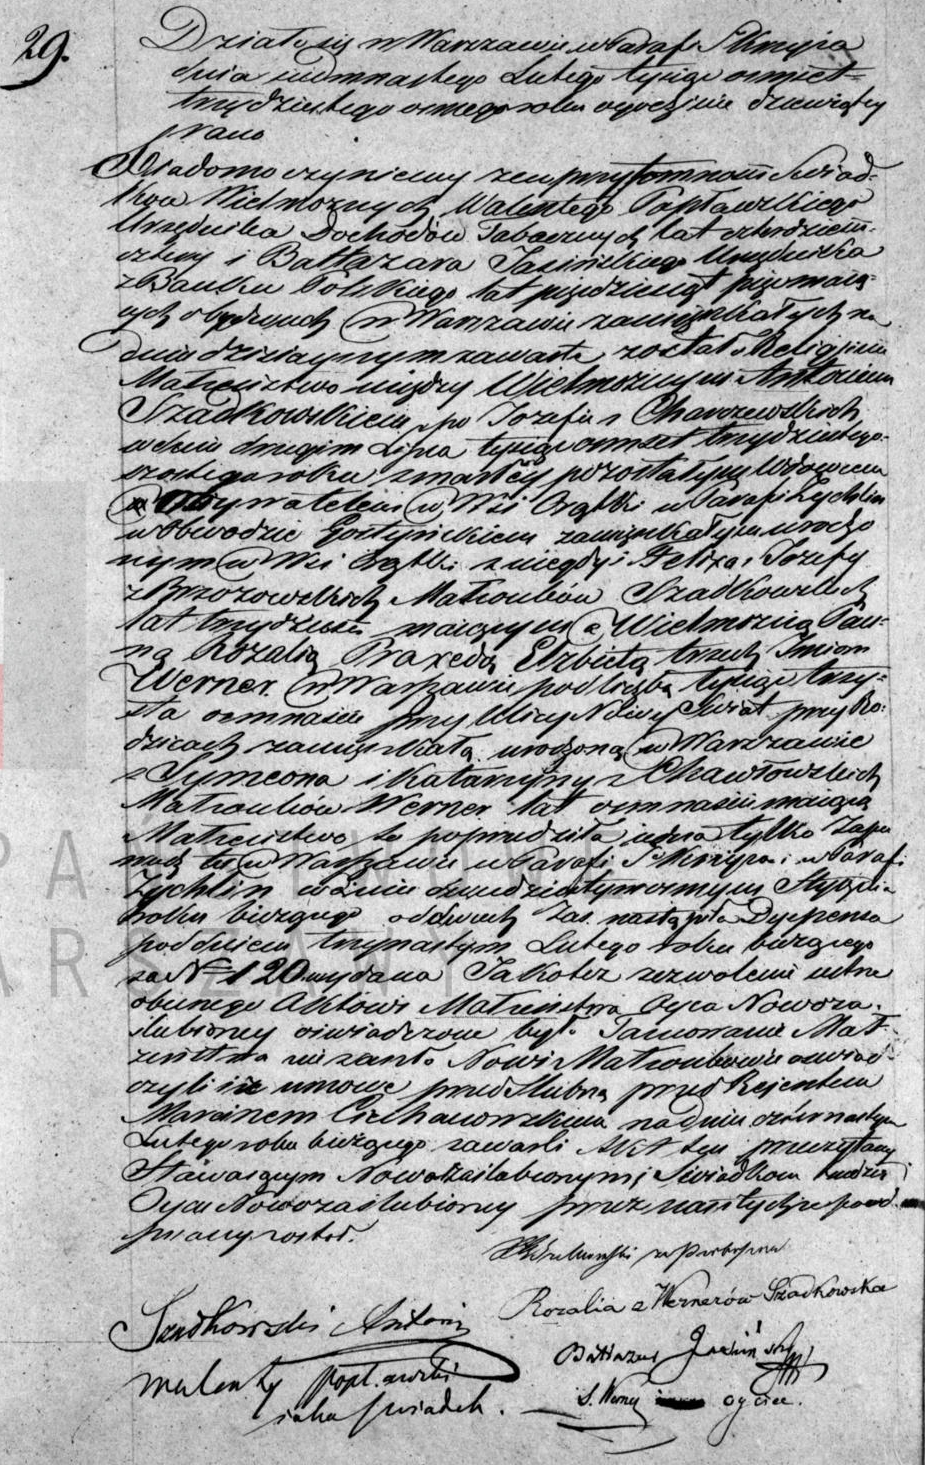 29.
Działo się w Warszawie w Parafii S. Krzyża
dnia siedmnastego Lutego tysiąc ośmset
trzydziestego osmego roku o godzinie dziewiątej
rano
Wiadomo czyniemy że w przytomności Świad-
ków Wielmożnych Walentego Popławskiego
Urzędnika Dochodów Tabacznych lat czterdzieści
cztery i Baltazara Jasińskiego Urzędnika
z Banku Polskiego lat pięćdziesiąt pięć maią-
cych obydwuch w Warszawie zamięszkałych na
dniu dzisiayszym zawarte zostało Religijne
Małżeństwo między Wielmożnym Antonim
Szadkowskim, po Jozefie z Charzewskich
w dniu drugim Lipca tysiąc ośmset trzydziestego
szóstego roku zmarłey pozostałym Wdowcem
Obywatelem w Wsi Drątki w Parafii Żychlin
w Obwodzie Gostyńskim zamięszkałym urodzo
nym w Wsi Drątki z niegdyś Felixa i Jozefy
z Brzozowskich Małżonków Szadkowskich
lat trzydzieści maiącym a Wielmożną Pan-
ną Rozalią Praxedą Elżbietą trzech Imion
Werner w Warszawie pod liczbą tysiąc trzy-
sta ośmnaście przy Ulicy Nowy Świat przy Ro-
dzicach zamięszkałą urodzoną w Warszawie
z Symeona i Katarzyny z Chawłowskich
Małżonków Werner lat ośmnaście maiącą
Małżeństwo to poprzedziła iedna tylko Zapo
wiedź w Warszawie w Parafii S. Krzyża i w Parafi
Żychlin w dniu dwudziestym ósmym Stycznia
roku bieżącego od dwuch Zap. nastąpiła Dyspensa
pod dniem trzynastym Lutego roku bieżącego
za No 120 wydana Jakoteż zezwolenie ustne
obecnego Aktowi Małżeństwa Oyca Nowoza-
ślubioney oświadczone było Tamowanie Mał-
żeństwa nie zaszło Nowi Małżonkowie oświad-
czyli iż umowę przedślubną przed Rejentem
Marcinem Ciechanowskim na dniu czternastym
Lutego roku bieżącego zawarli Akt ten przeczytany
Stawaiącym Nowozaślubionym i Świadkom tudzież
Oycu Nowozaślubioney przez nas i tychże pod-
pisany został.
za Proboszcza
Rozalia z Wernerów Szadkowska
Szadkowski Antoni
Baltazar Jasiński
Walenty Popławski
jako świadek.
S. Werner ogciec.